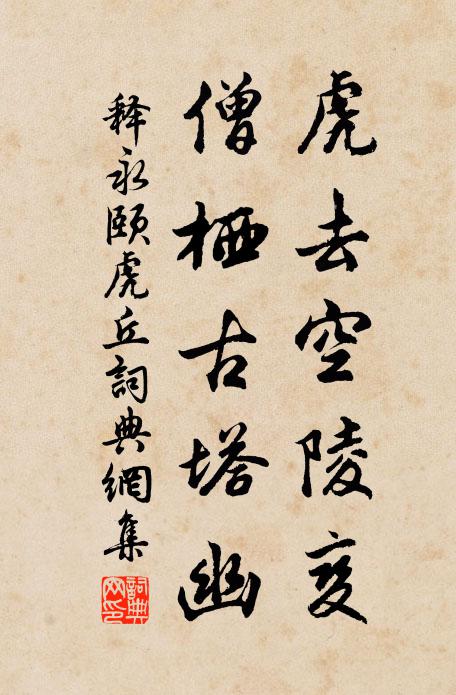 虎去空陵变
僧栖古塔幽
释永颐虎丘詞典網集
詞典网印